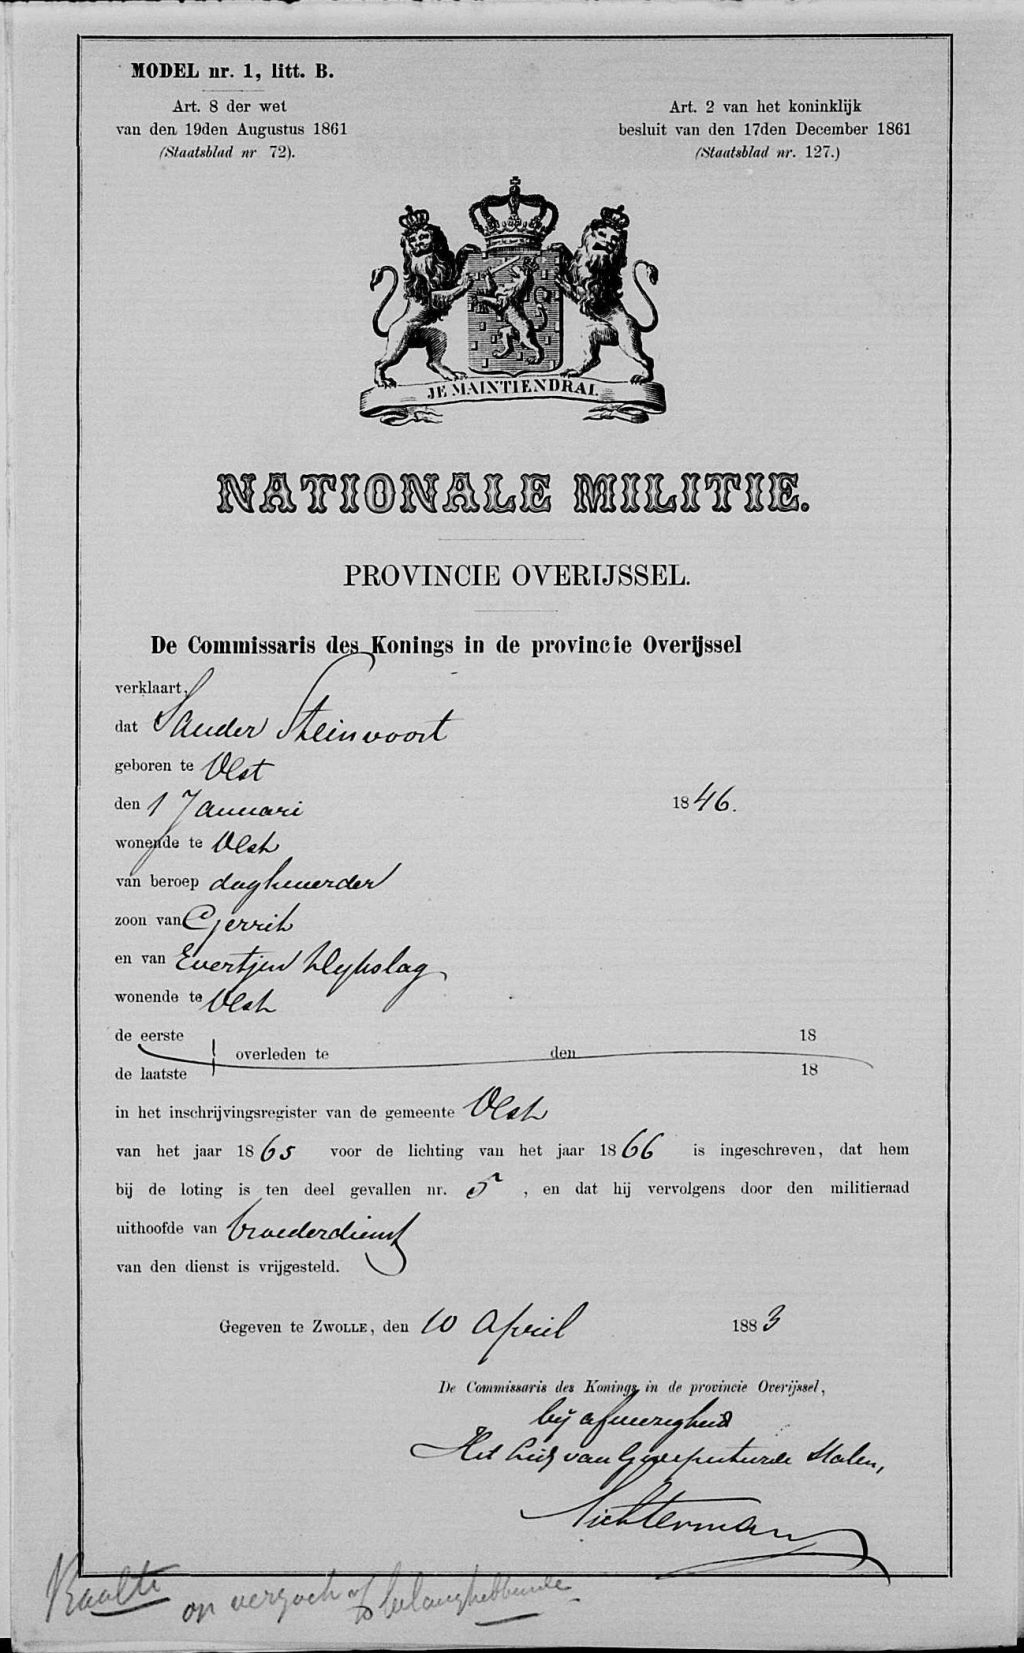 MODEL nr. 1, litt. B.
Art. 8 der wet
van den 19den Augustus 1861
(Staatsblad nr 72).
Art. 2 van het koninklijk
besluit van den 17den December 1861
(Staatsblad nr. 127.)
JE MAINTIENDRAI.
NATIONALE MILITIE.
PROVINCIE OVERIJSSEL.
De Commissaris des Konings in de provincie Overijssel
verklaart,
dat Sander Steinvoort
geboren te Olst
den 1 Januari 1846.
wonende te Olst
van beroep daghuurder
zoon van Gerrit
en van Evertjen
wonende te Olst
de eerste 18
overleden te den
de laatste 18
in het inschrijvingsregister van de gemeente Olst
van het jaar 1865 voor de lichting van het jaar 1866 is ingeschreven, dat hem
bij de loting is ten deel gevallen nr. 5, en dat hij vervolgens door den militieraad
uithoofde van broederdienst
van den dienst is vrijgesteld.
Gegeven te ZWOLLE, den 10 April 1883
De Commissaris des Konings in de provincie Overijssel,
bij afwezigheid
Het Lid van Gedeputeerde Staten,
Sichterman
Raalte op verzoek of belanghebbende